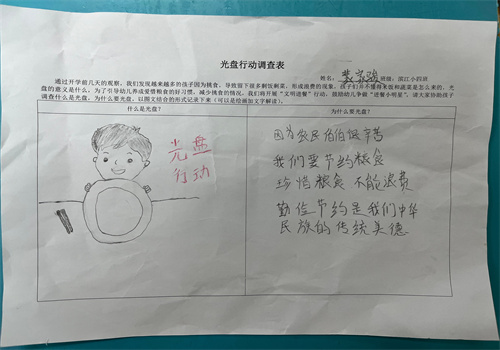 光盘行动调查表
姓名： 班级：滨江小四班
通过开学前几天的观察，我们发现越来越多的孩子因为挑食，导致留下很多剩饭剩菜，形成浪费的现象。孩子们并不懂得米饭和蔬菜是怎么来的，光
盘的意义是什么。为了引导幼儿养成爱惜粮食的好习惯，减少挑食的情况。我们将开展“文明进餐”行动，鼓励幼儿争做“进餐小明星”。请大家协助孩子
调查什么是光盘，为什么要光盘，以图文结合的形式记录下来（可以是绘画加文字解读）。
什么是光盘？
为什么要光盘？
光盘
行动
因为农民伯伯很辛苦
我们要节约粮食
珍惜粮食 不能浪费
勤俭节约是我们中华
民族的传统美德